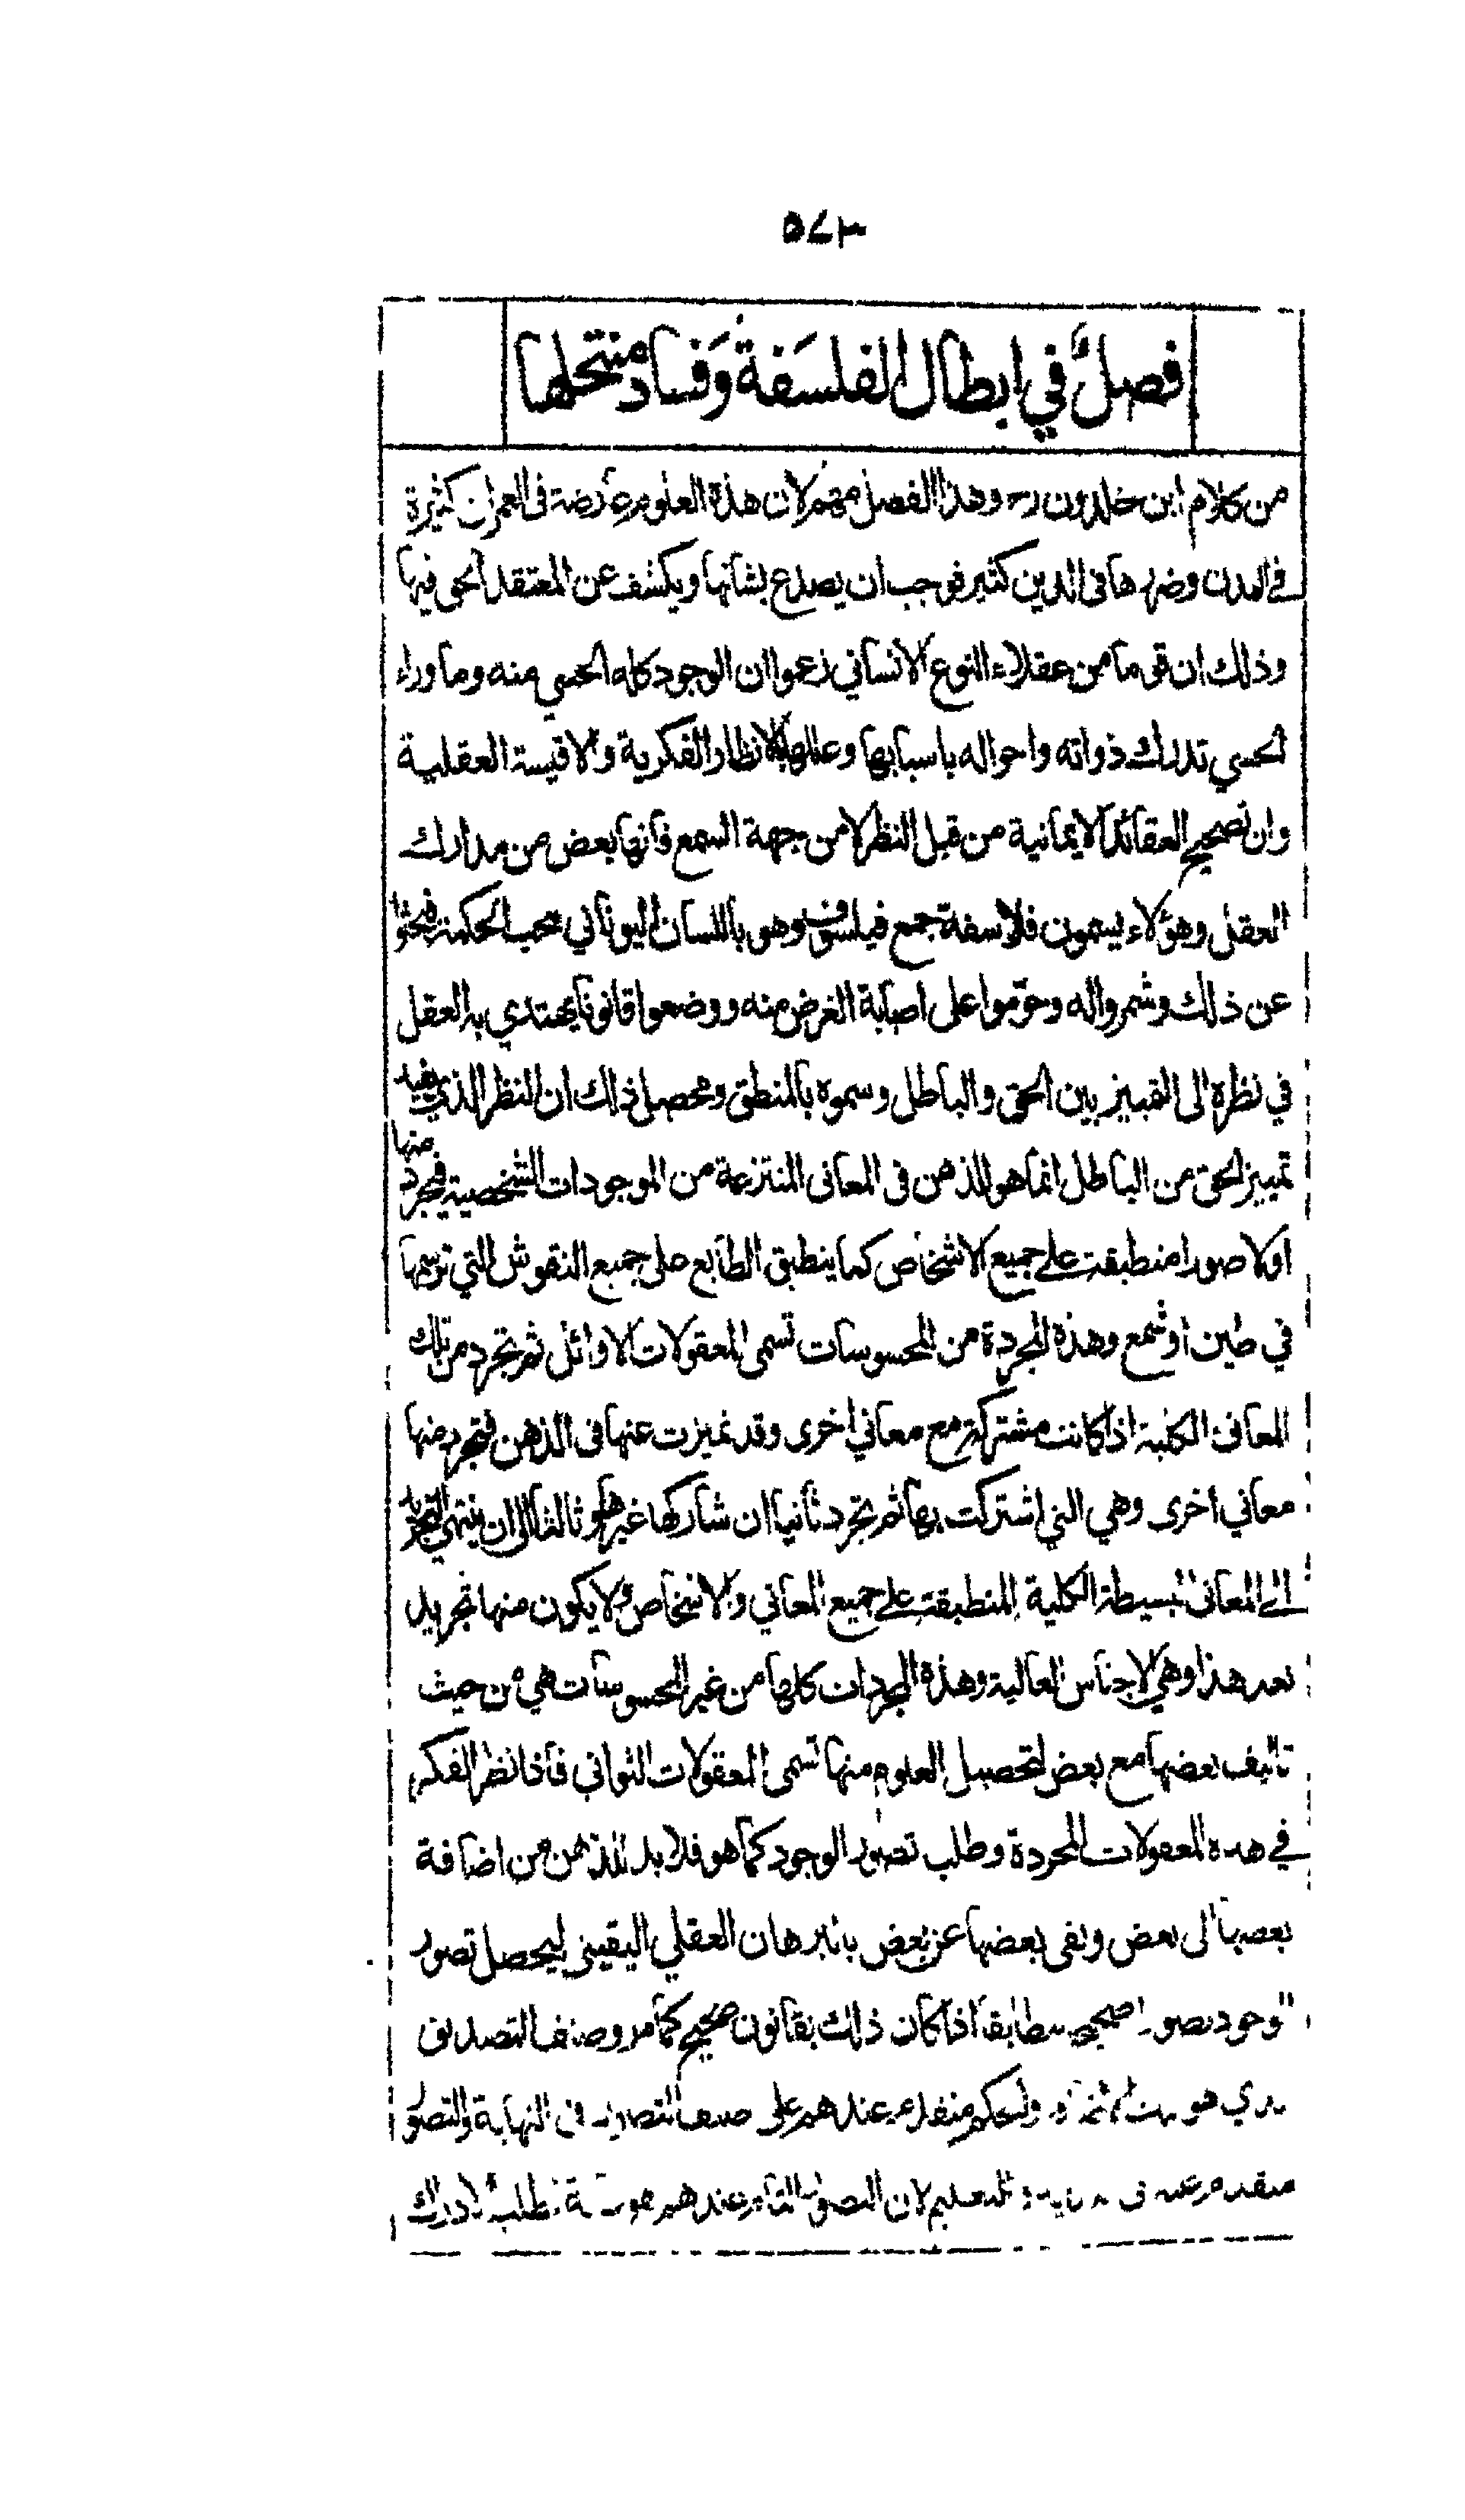 ٥٧٣
فصلٌ في ابطال الفلسَفة وَفساد منتحلها
من كلام ابن خلدون رح وهذا الفصل مهم لان هذه العلوم عارضة فى العمران كثيرة
في المدن وضررها فى الدين كثير فوجب ان يصدع بشانها ويكشف عن المعتقد الحق فيها
وذلك ان قوما من عقلاء النوع الانساني زعموا ان الوجود كله الحسي منه وما وراء
الحسي تدرك ذواته واحواله باسبابها وعللها بالانظار الفكرية والاقيسة العقلية
وان تصحيح العقائد الايمانية من قبل النظر لا من جهة السمع فانها بعض من مدارك
العقل وهؤلاء يسمون فلاسفة جمع فيلسوف وهو باللسان اليوناني محب الحكمة فبحثوا
عن ذلك وشمروا له وحوّموا على اصابة الغرض منه ووضعوا قانونا يهتدي به العقل
في نظره الى التمييز بين الحق والباطل وسموه بالمنطق ومحصل ذلك ان النظر الذي يفيد
تمييز الحق من الباطل انما هو للذهن فى المعانى المنتزعة من الموجودات الشخصية فيجرد منها
اولا صورا منطبقة على جميع الاشخاص كما ينطبق الطابع على جميع النقوش التي ترسمها
في طين او شمع وهذه المجردة من المحسوسات تسمى المعقولات الاوائل ثم تجرد من تلك
المعانى الكلية اذا كانت مشتركة مع معاني اخرى وقد تميزت عنها فى الذهن فتجرد منها
معاني اخرى وهي التي اشتركت بها ثم تجرد ثانيا ان شاركها غيرها وثالثا الى ان ينتهي التجريد
الى المعانى البسيطة الكلية المنطبقة على جميع المعاني والاشخاص ولا يكون منها تجريد
بعد هذا وهي الاجناس العالية وهذه المجردات كلها من غير المحسوسات هي من حيث
تاليف بعضها مع بعض لتحصيل العلوم منها تسمى المعقولات الثواني فاذا نظر الفكر
في هذه المعقولات المجردة وطلب تصور الوجود كما هو فلا بد للذهن من اضافة
بعضها الى بعض ونفى بعضها عن بعض بالبرهان العقلي اليقينى ليحصل تصور
الوجود تصورا صحيحا مطابقا اذا كان ذلك بقانون صحيح كما مر وصنف التصديق
الذي هو والحكم متقدم عندهم على صنف التصور فى النهاية والتصور
متقدم عليه فى والتعليم لان التصور التام عندهم هو لطلب الادراك